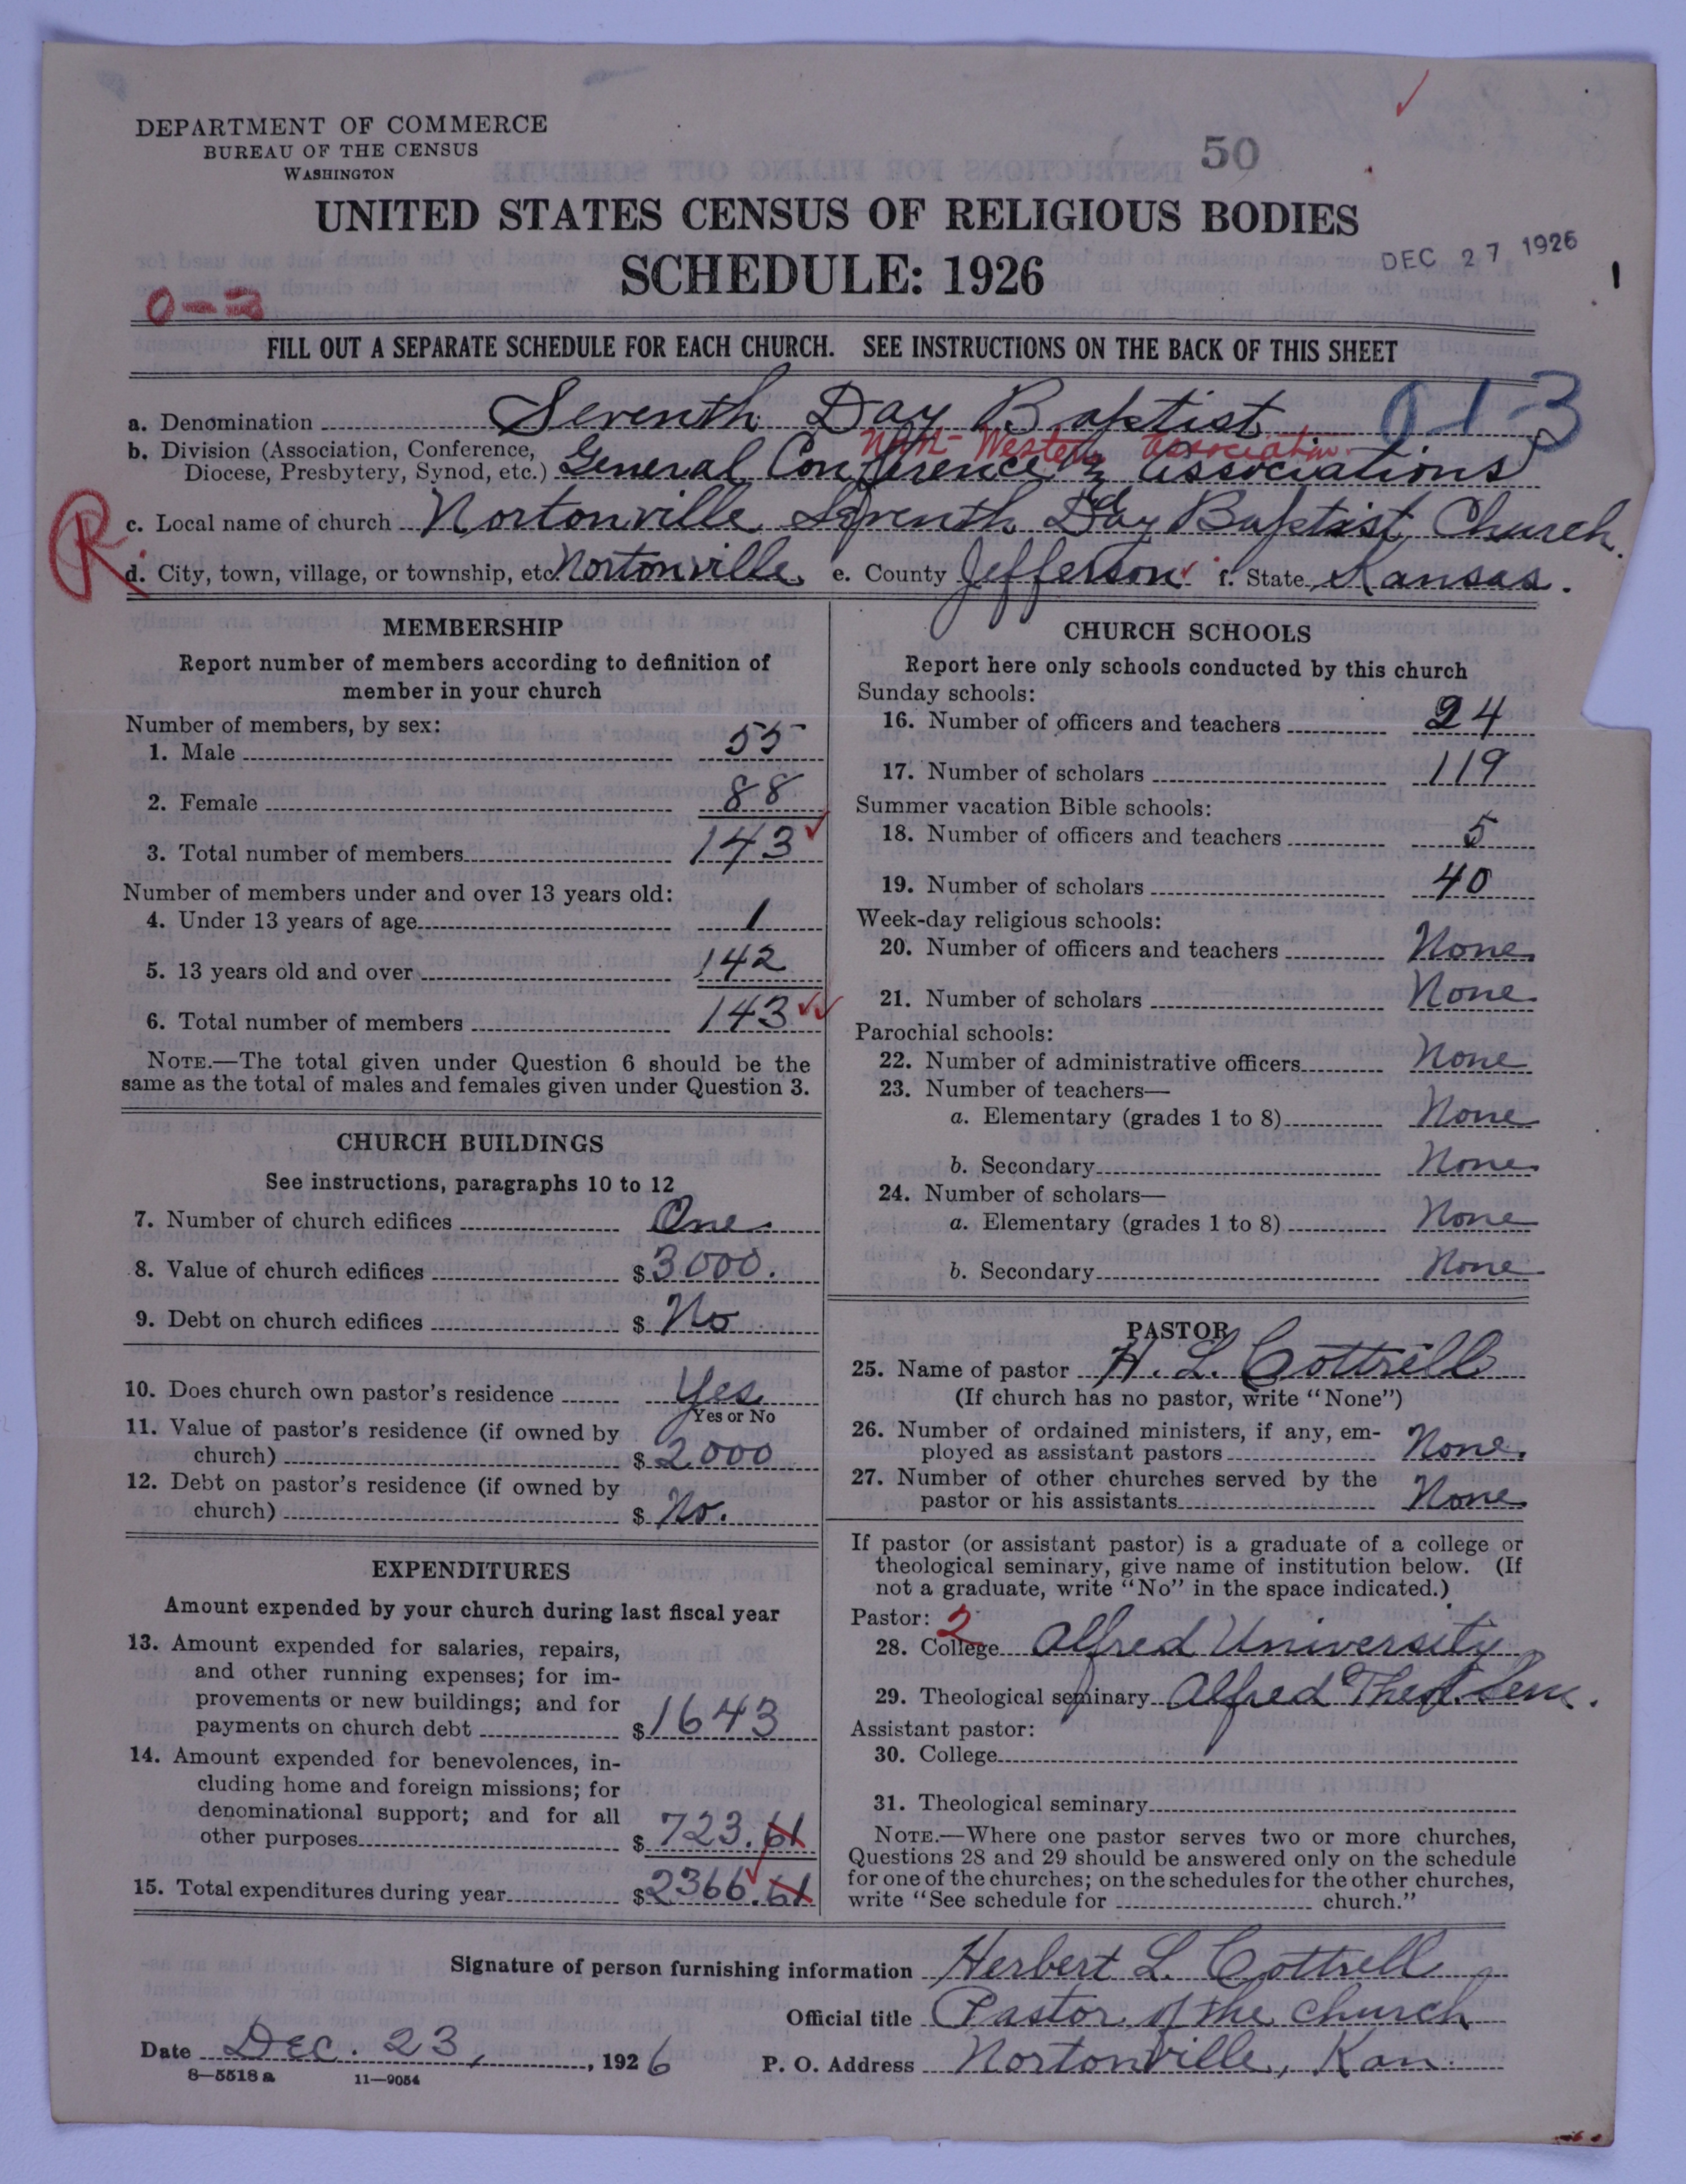 DEPARTMENT OF COMMERCE
BUREAU OF THE CENSUS
WASHINGTON
50
UNITED STATES CENSUS OF RELIGIOUS BODIES
SCHEDULE: 1926
DEC 27 1926
FILL OUT A SEPARATE SCHEDULE FOR EACH CHURCH. SEE INSTRUCTIONS ON THE BACK OF THIS SHEET
a. Denomination Seventh Day Baptist 0 1 3
North-Western Association
b. Division (Association, Conference,
Diocese, Presbytery, Synod, etc.) General Conference & Associations
R
c. Local name of church Nortonville Seventh Day Baptist Church.
d. City, town, village, or township, etc. Nortonville, e. County Jefferson f. State Kansas.
MEMBERSHIP
Report number of members according to definition of
member in your church
Number of members, by sex:
1. Male 55
2. Female 88
3. Total number of members 143
Number of members under and over 13 years old:
4. Under 13 years of age 1
5. 13 years old and over 142
6. Total number of members 143
NOTE.—The total given under Question 6 should be the
same as the total of males and females given under Question 3.
CHURCH BUILDINGS
See instructions, paragraphs 10 to 12
7. Number of church edifices One
8. Value of church edifices $3000.
9. Debt on church edifices $ No
10. Does church own pastor's residence Yes
Yes or No
11. Value of pastor's residence (if owned by
church) $ 2000
12. Debt on pastor's residence (if owned by
church) $ No.
EXPENDITURES
Amount expended by your church during last fiscal year
13. Amount expended for salaries, repairs,
and other running expenses; for im-
provements or new buildings; and for
payments on church debt $1643
14. Amount expended for benevolences, in-
cluding home and foreign missions; for
denominational support; and for all
other purposes $ 723.61
15. Total expenditures during year $2366.61
CHURCH SCHOOLS
Report here only schools conducted by this church
Sunday schools:
16. Number of officers and teachers 24
17. Number of scholars 119
Summer vacation Bible schools:
18. Number of officers and teachers 5
19. Number of scholars 40
Week-day religious schools:
20. Number of officers and teachers None
21. Number of scholars None
Parochial schools:
22. Number of administrative officers None
23. Number of teachers—
a. Elementary (grades 1 to 8) None
b. Secondary None
24. Number of scholars—
a. Elementary (grades 1 to 8) None
b. Secondary None
PASTOR
25. Name of pastor H. L. Cottrell
(If church has no pastor, write "None")
26. Number of ordained ministers, if any, em-
ployed as assistant pastors None.
27. Number of other churches served by the
pastor or his assistants None
If pastor (or assistant pastor) is a graduate of a college or
theological seminary, give name of institution below. (If
not a graduate, write "No" in the space indicated.)
Pastor: 2
28. College Alfred University
29. Theological seminary Alfred Theol. Sem.
Assistant pastor:
30. College
31. Theological seminary
NOTE.—Where one pastor serves two or more churches,
Questions 28 and 29 should be answered only on the schedule
for one of the churches; on the schedules for the other churches,
write "See schedule for church."
Signature of person furnishing information Herbert L. Cottrell
Official title Pastor of the church
Date Dec. 23, 1926 P. O. Address Nortonville, Kan.
8—5518 a 11—9054